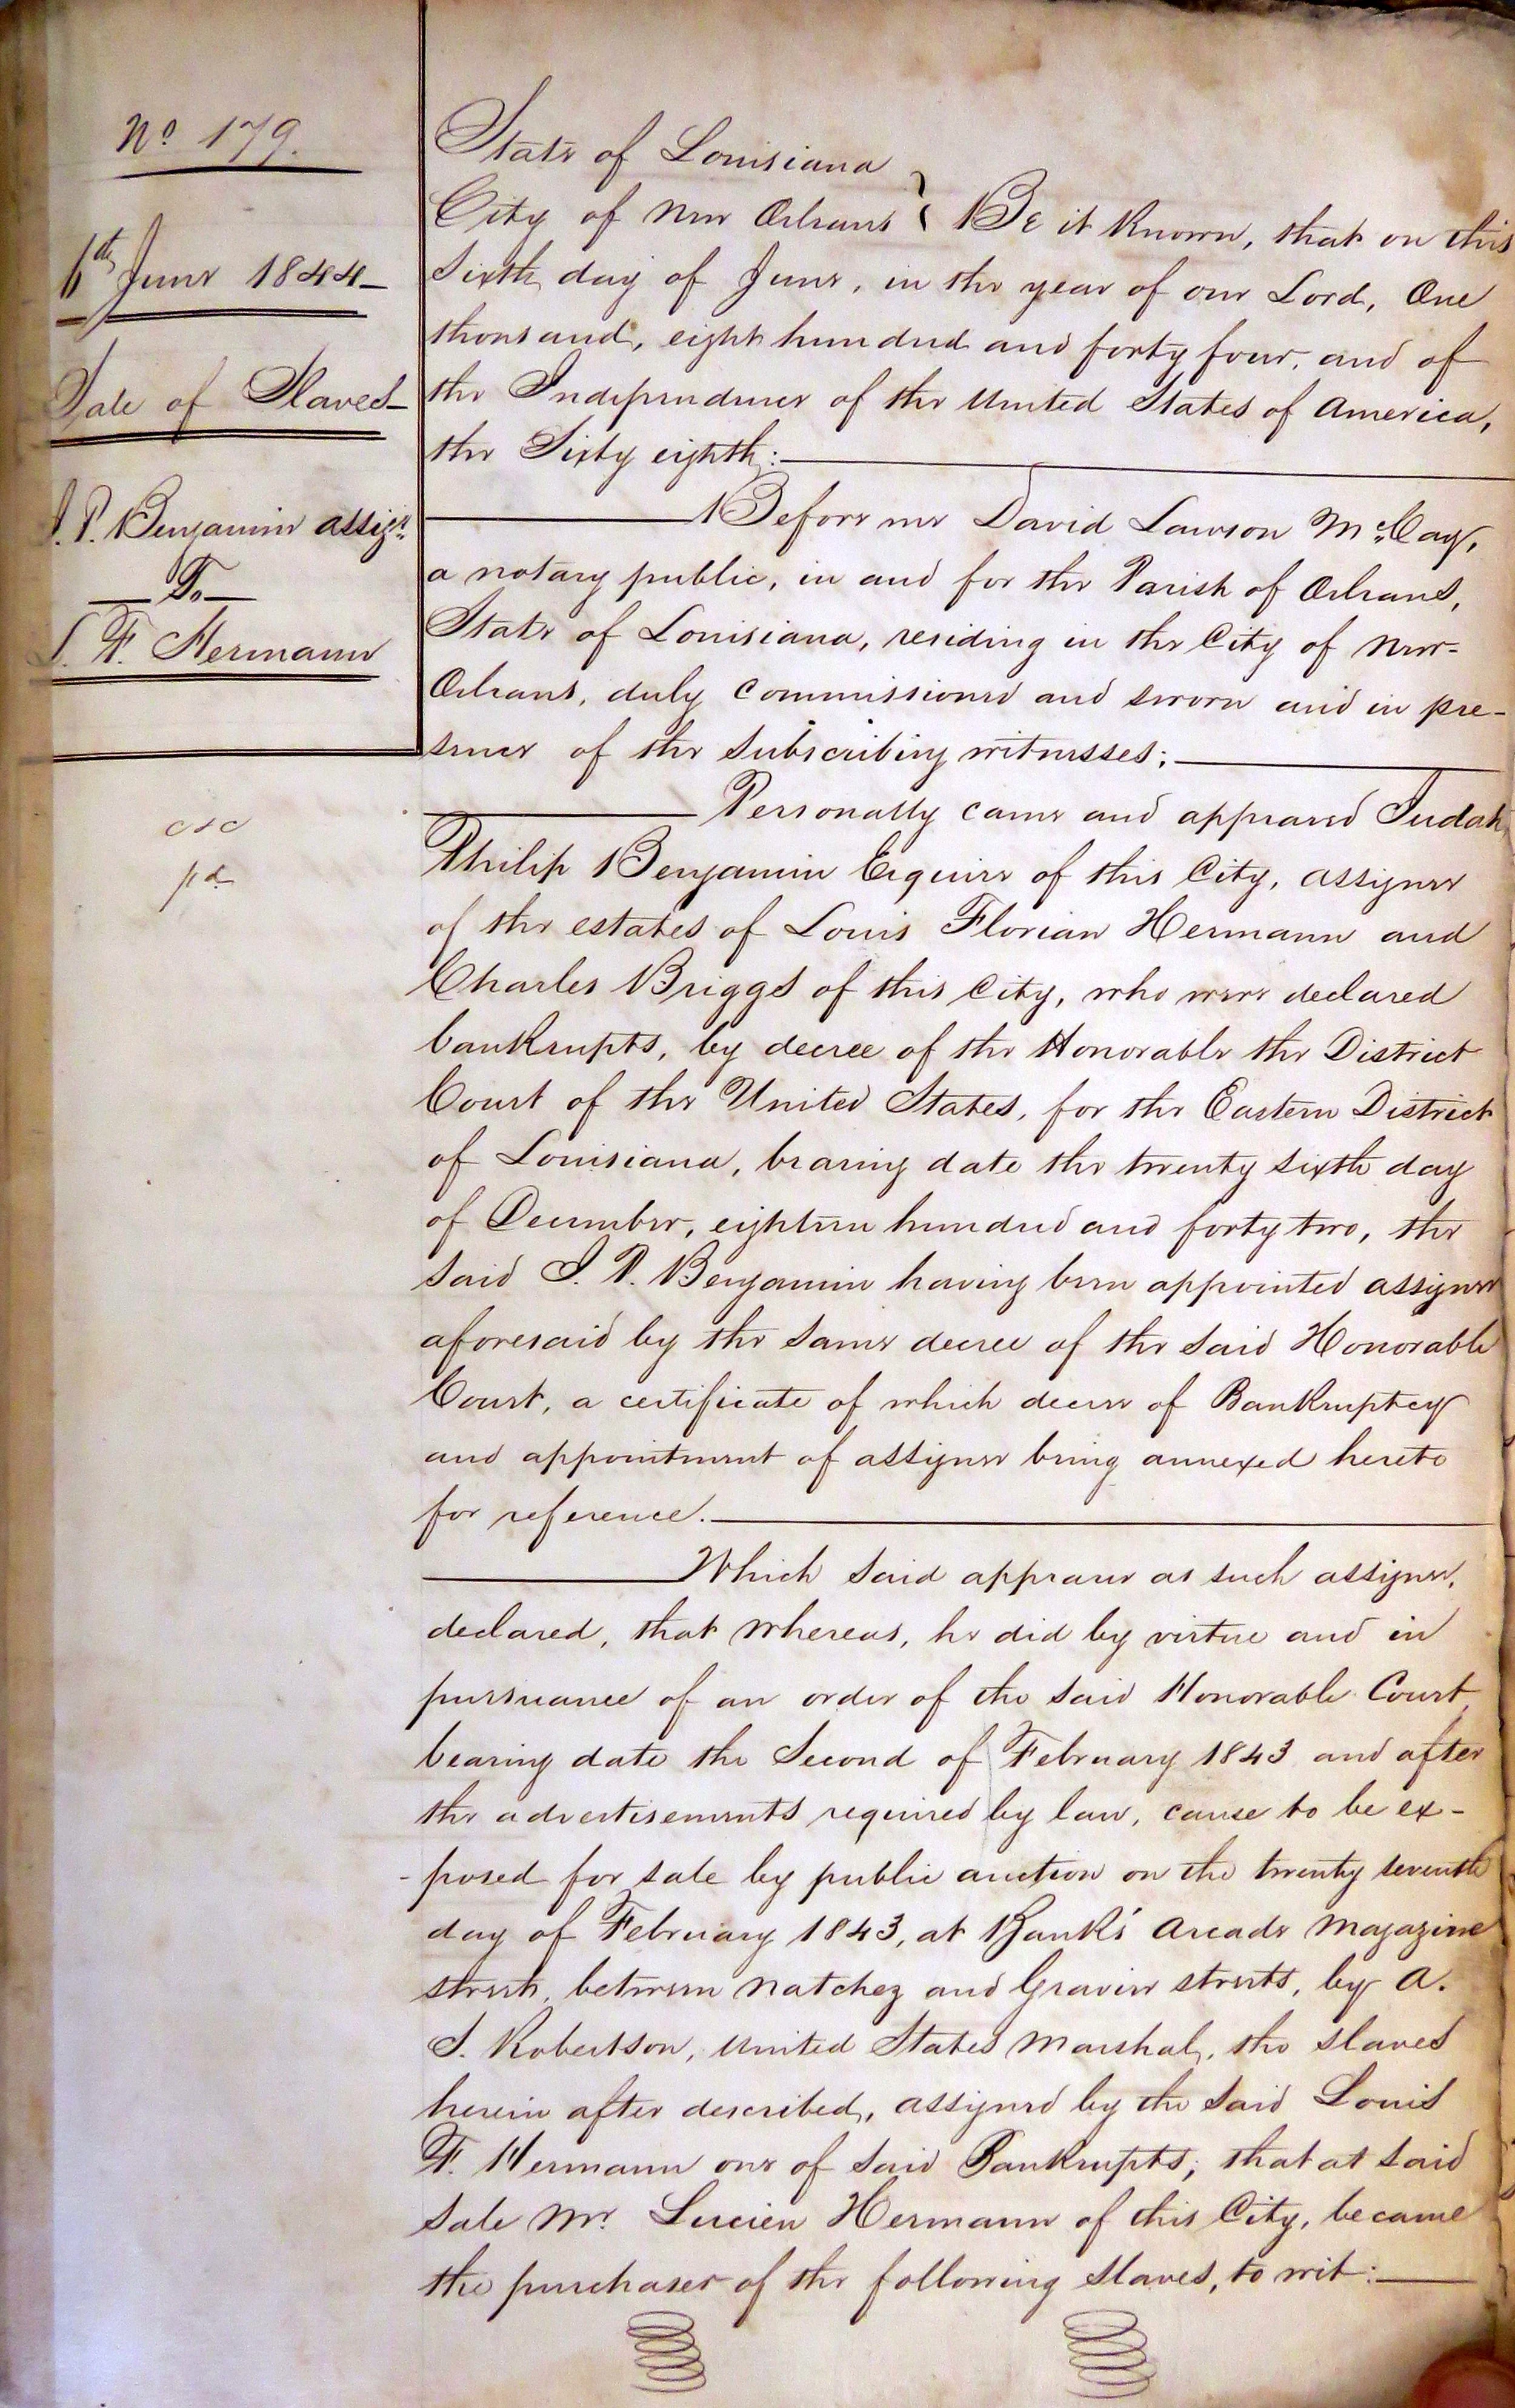 No 179.
6th June 1844
Sale of Slaves
J. P. Benjamin assigee
To
L. F. Hermann
State of Louisiana
City of New Orleans } Be it Known, that on this
Sixth day of June, in the year of our Lord, One
thousand, eight hundred and forty four, and of
the Independence of the United States of America,
the Sixty eighth:
Before me David Lawson McCay,
a notary public, in and for the Parish of Orleans,
State of Louisiana, residing in the City of New-
Orleans, duly commissioned and sworn and in pre-
sence of the subscribing witnesses;
Personally came and appeared Judah
Philip Benjamin Esquire of this City, assignee
of the estates of Louis Florian Hermann and
Charles Briggs of this City, who were declared
bankrupts, by decree of the Honorable the District
Court of the United States, for the Eastern District
of Louisiana, bearing date the twenty sixth day
of December, eighteen hundred and forty two, the
said J. P. Benjamin having been appointed assignee
aforesaid by the same decree of the said Honorable
Court, a certificate of which decree of Bankruptcy
and appointment of assignee being annexed hereto
for reference.
Which said appearer as such assignee,
declared, that whereas, he did by virtue and in
pursuance of an order of the said Honorable Court,
bearing date the Second of February 1843 and after
the advertisements required by law, cause to be ex-
-posed for sale by public auction on the twenty seventh
day of February 1843, at Banks' Arcade Magazine
street, between Natchez and Gravier streets, by A.
S. Robertson, United States Marshal, the slaves
herein after described, assigned by the said Louis
F. Hermann one of said Bankrupts; that at said
sale Mr. Lucien Hermann of this City, became
the purchaser of the following slaves, to wit:
pd